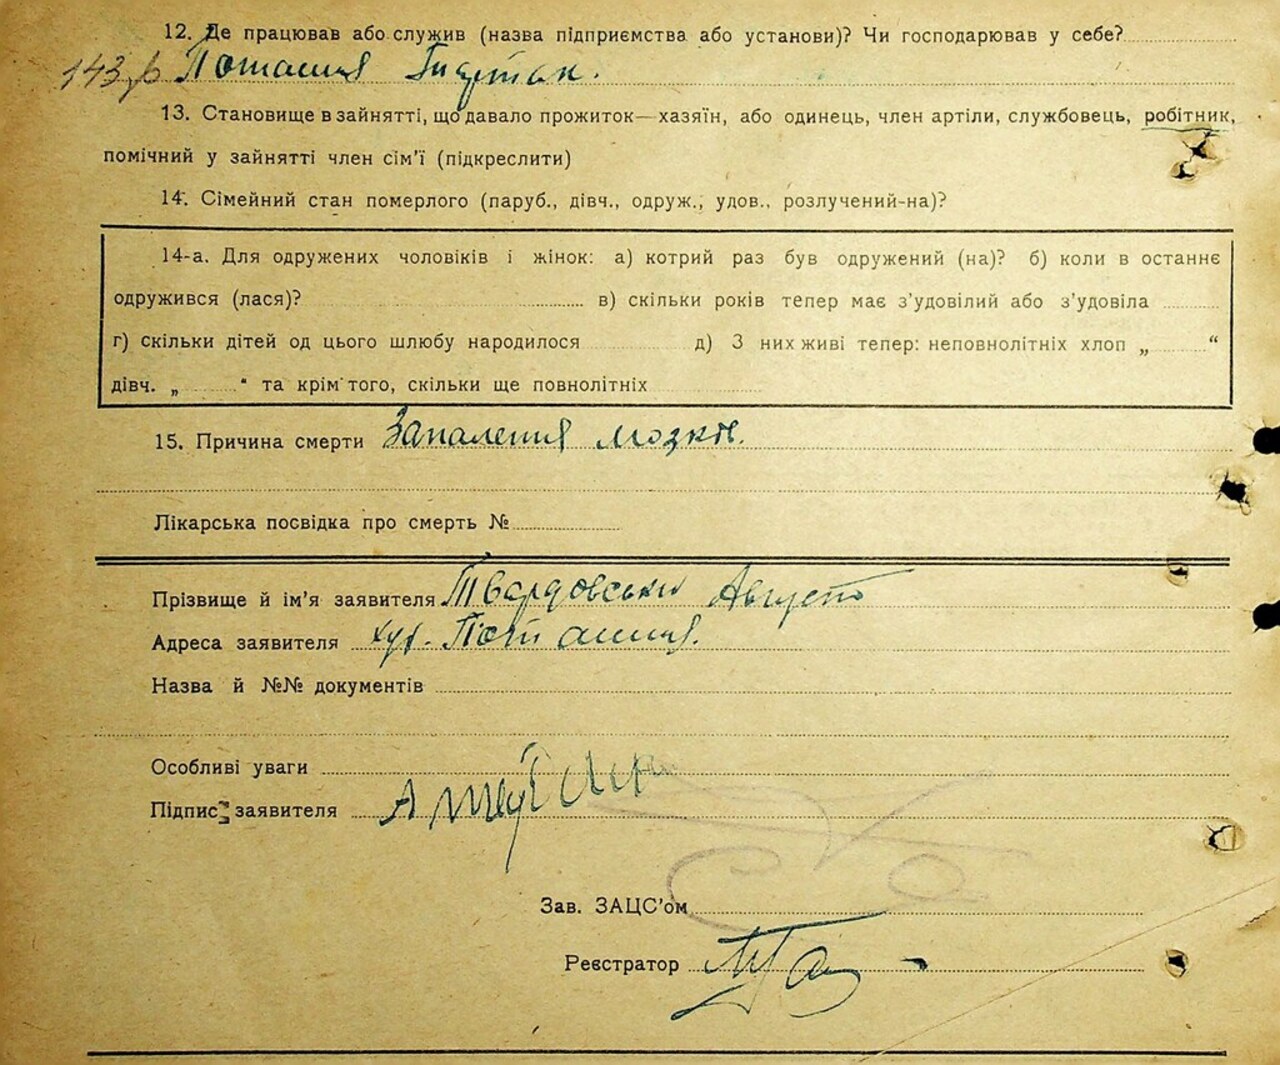 12. Де працював або служив (назва підприємства або установи)? Чи господарював у себе?
143 Поташня
13. Становище в зайнятті, що давало прожиток—хазяїн, або одинець, член артіли, службовець, робітник,
помічний у зайнятті член сім'ї (підкреслити)
14. Сімейний стан померлого (паруб., дівч., одруж., удов., розлучений-на)?
14-а. Для одружених чоловіків і жінок: а) котрий раз був одружений (на)? б) коли в останнє
одружився (лася)? в) скільки років тепер має з'удовілий або з'удовіла
г) скільки дітей од цього шлюбу народилося д) З них живі тепер: неповнолітніх хлоп „ “
дівч. „ “ та крім того, скільки ще повнолітніх
15. Причина смерти Запалення мозків.
Лікарська посвідка про смерть №
Прізвище й ім'я заявителя Твардовськи Август
Адреса заявителя хут. Поташня.
Назва й №№ документів
Особливі уваги
Підпис заявителя
Зав. ЗАЦС'ом
Реєстратор